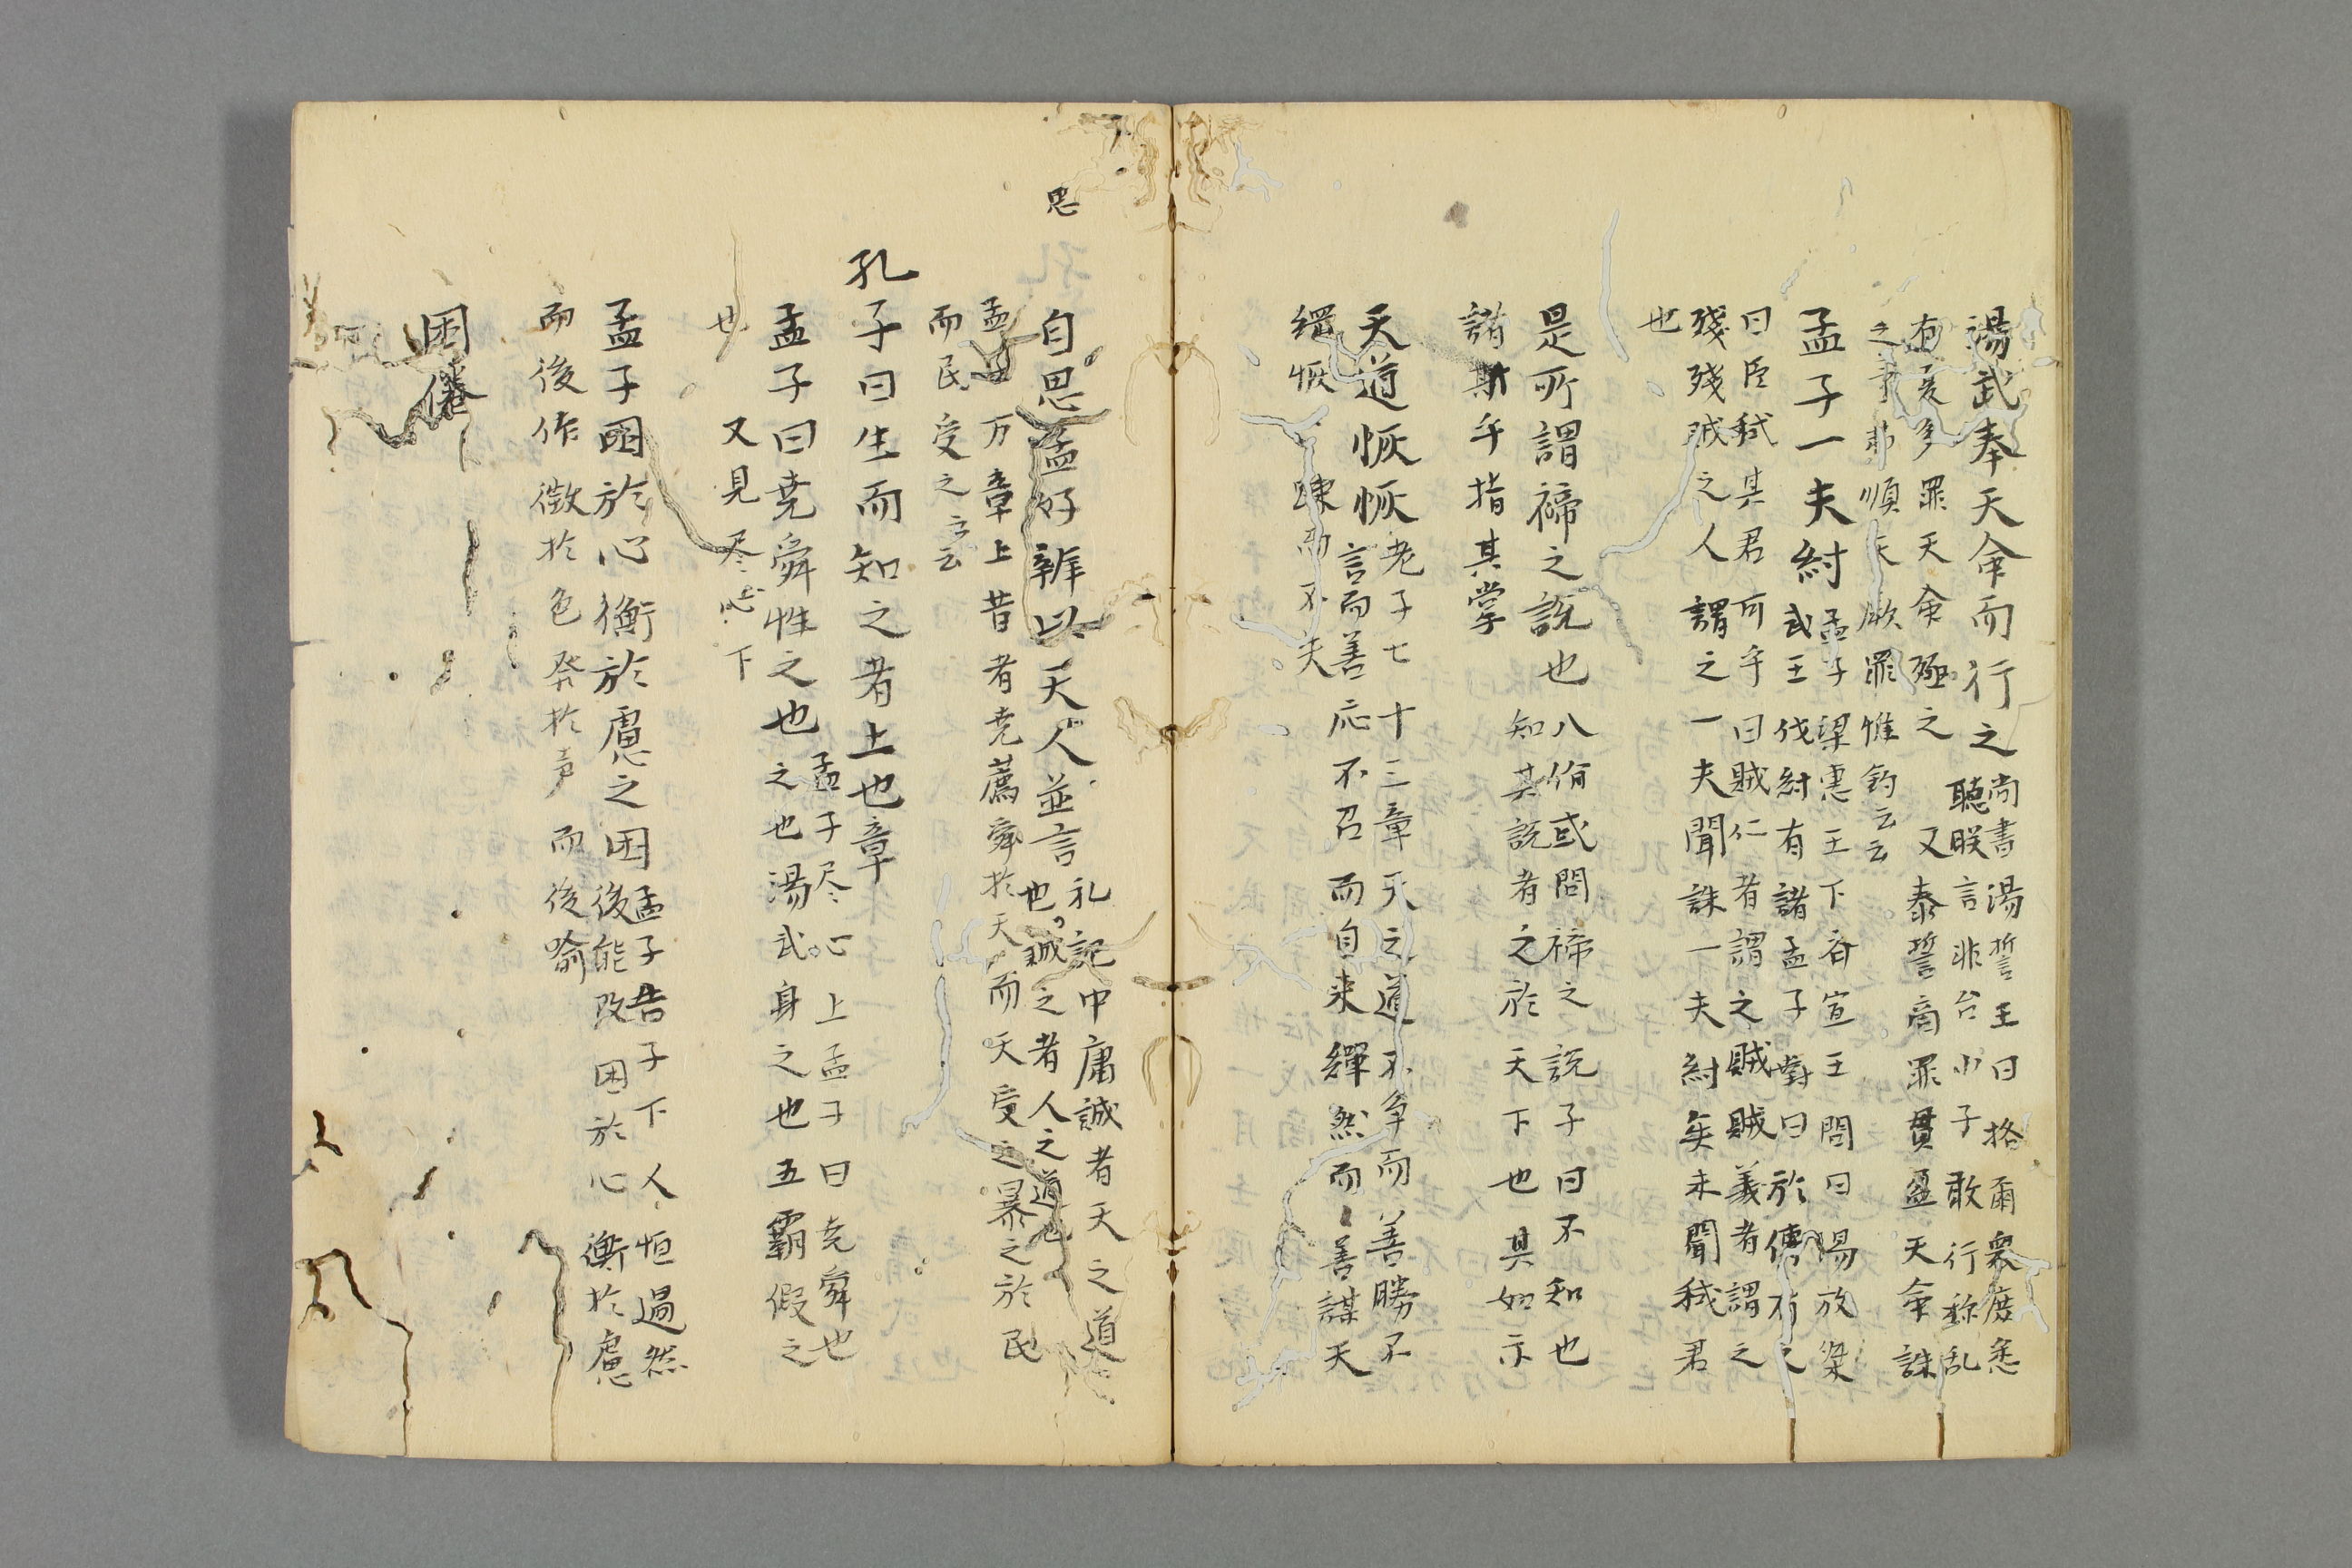 湯武奉天命而行之
尚書湯誓王曰格爾衆庶悉
聴朕言非台小子敢行称乱
有夏多罪天命殛之又泰誓商罪貫盈天命誅
之弗順天厥罪惟鈞云云
孟子一夫紂
孟子梁恵王下斉宣王問曰湯放桀
武王伐紂有諸孟子對曰於傳有之
曰臣弑其君可乎曰賊仁者謂之賊賊義者謂之
残残賊之人謂之一夫聞誅一夫紂矣未聞弑君
也
是所謂禘之説也
八佾或問禘之説子曰不知也
知其説者之於天下也其如示
諸斯乎指其掌
天道恢恢
老子七十三章天之道不争而善勝不
言而善応不召而自来繟然而善謀天
網恢〻踈而不失
思
自思孟好辨以天人並言
礼記中庸誠者天之道
也誠之者人之道也
孟子万章上昔者尭薦舜於天而天受之暴之於民
而民受之云云
孔子曰生而知之者上也章
孟子曰尭舜性之也
孟子尽心上孟子曰尭舜也
之也湯武身之也五霸假之
也又見尽心下
孟子困於心衡於慮之困
孟子告子下人恒過然
後能改困於心衡於慮
而後作徴於色発於声而後喩
困倦